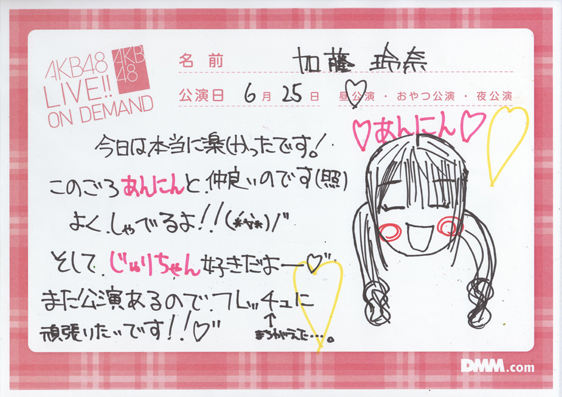 AKB48
LIVE!!
ON DEMAND
AKB
48
名前 加藤 玲奈
公演日 6月 25日 昼公演・おやつ公演・夜公演
♡あんにん♡
今日は本当に楽しかったです!
このごろあんにんと、仲良いのです(照)
よく、しゃでるよ!!(*^^*)/"
そして、じゅりちゃん好きだよー♡"
また公演あるので、フレッチュに
↑
まちがえた…。
頑張りたいです!!♡"
DMM.com